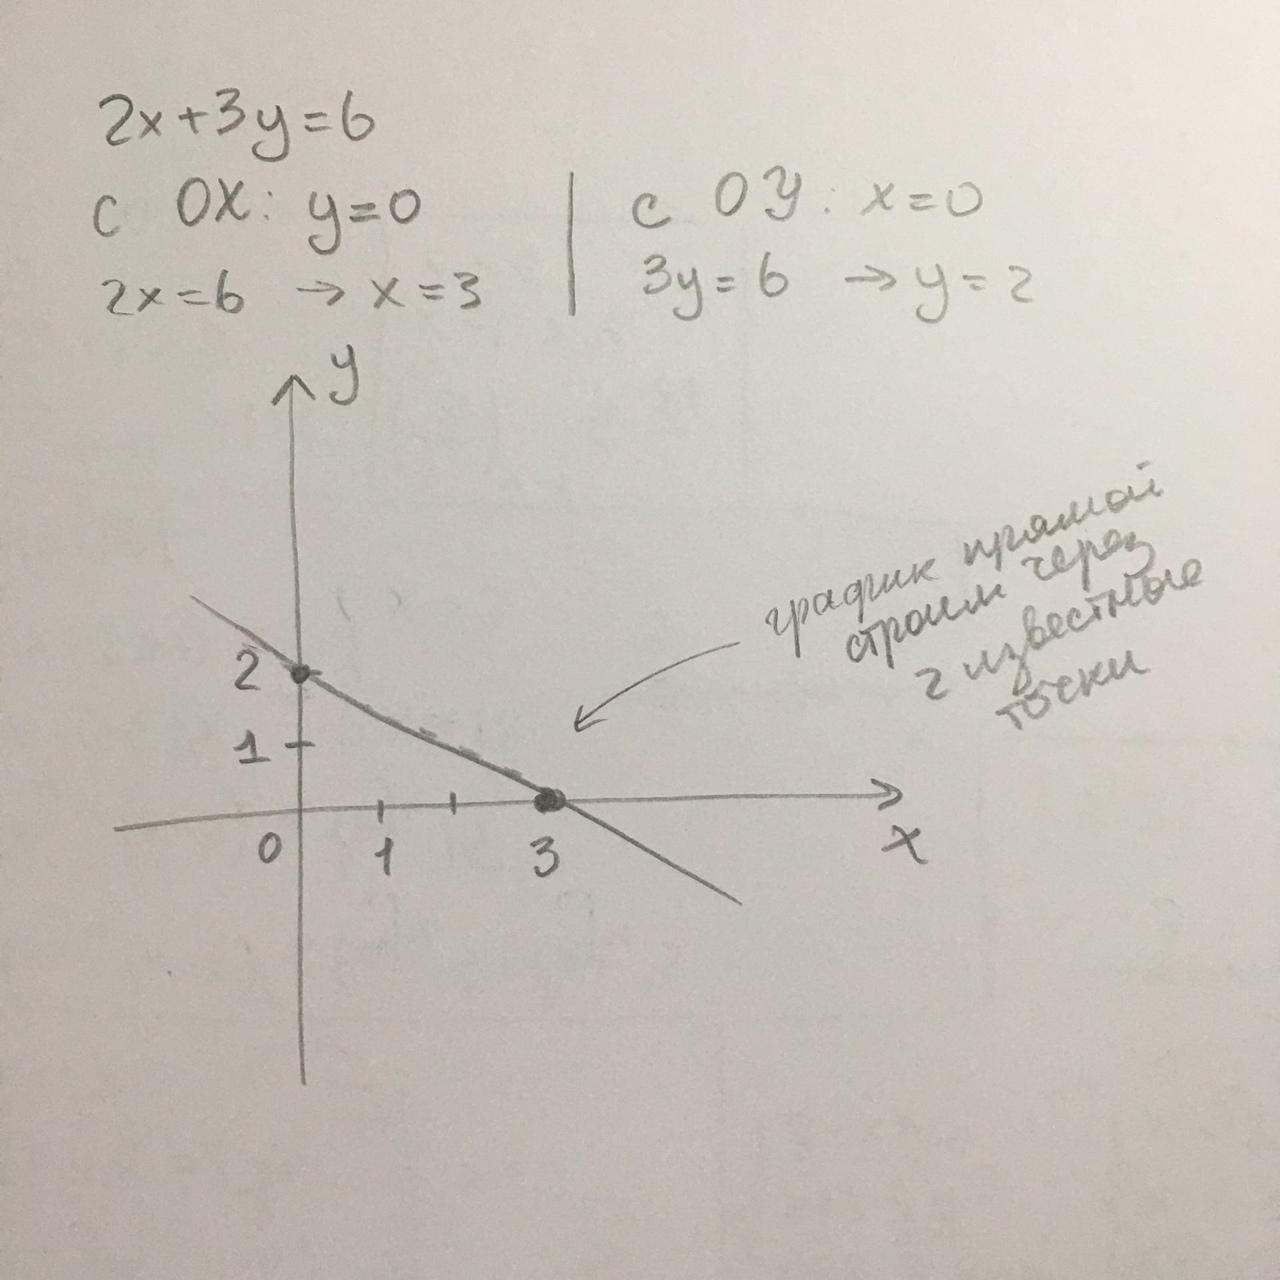 2x+3y=6
с OX: y=0
2x=6 → x=3
с OY: x=0
3y=6 → y=2
y
график прямой
строим через
2 известные
точки
2
1
0
1
3
x